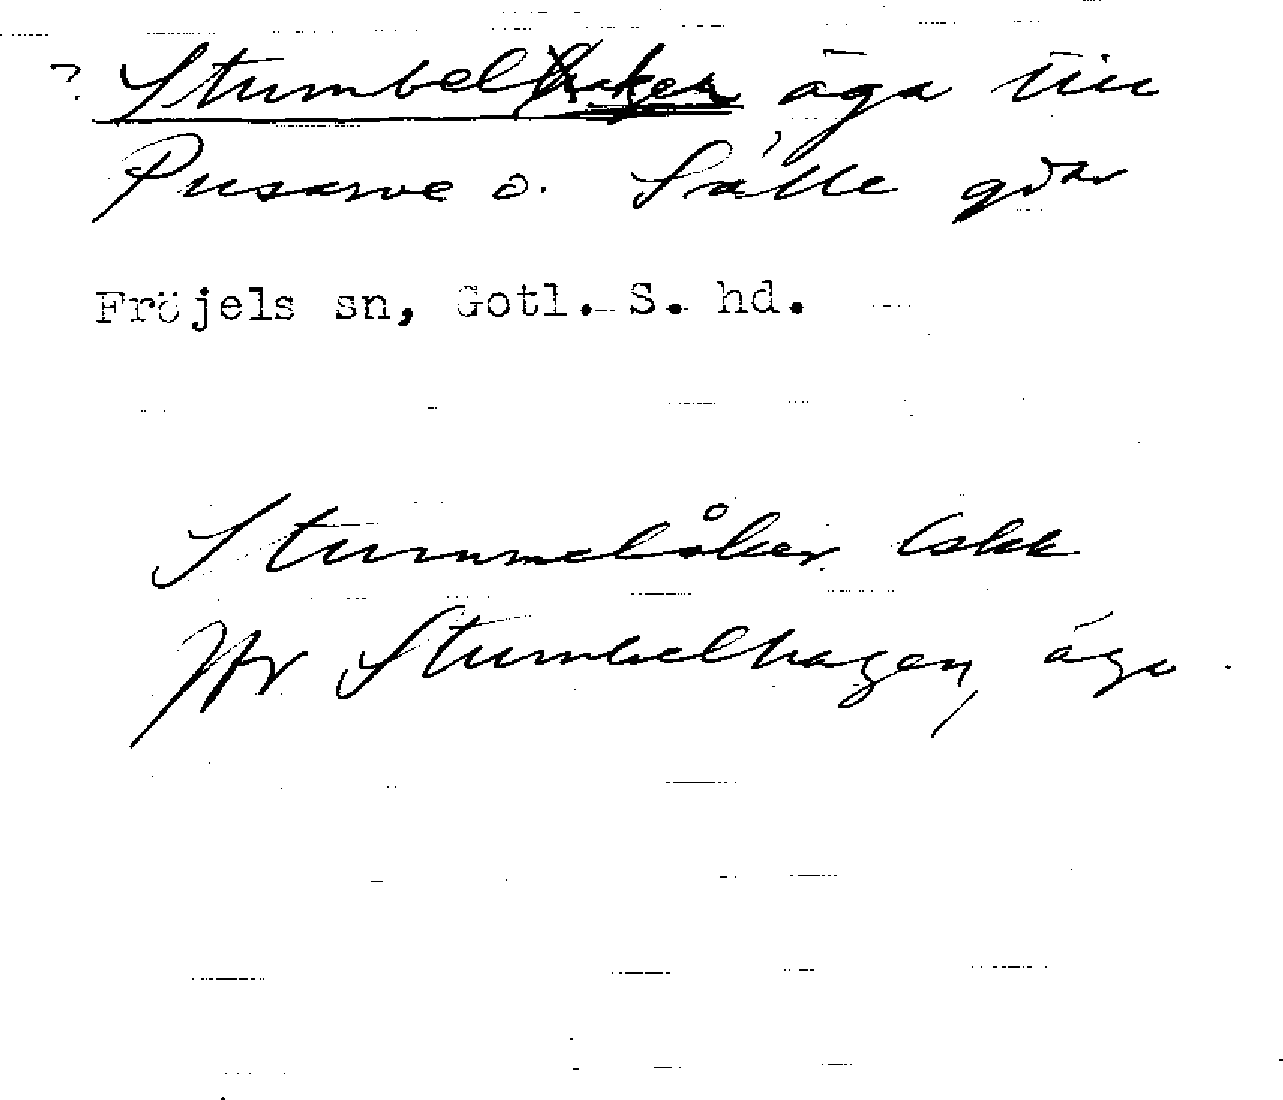 ? Stumbelåker äga till
Pusarve o. Sälle gdar
Fröjels sn, Gotl. S. hd.
Stummelåker Cskk
Jfr Stumbelhagen, äga.